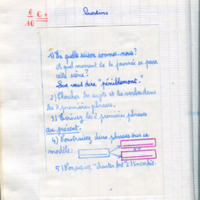 8 C+
10
Questions
1) En quelle saison sommes-nous?
A quel moment de la journée se passe
cette scène?
Que veut dire "péniblement".
2) Cherchez les sujets et les verbes dans
les 2 premières phrases.
3) Ecrivez les 2 premières phrases
au présent.
4) Construisez deux phrases sur ce
modèle:
5)